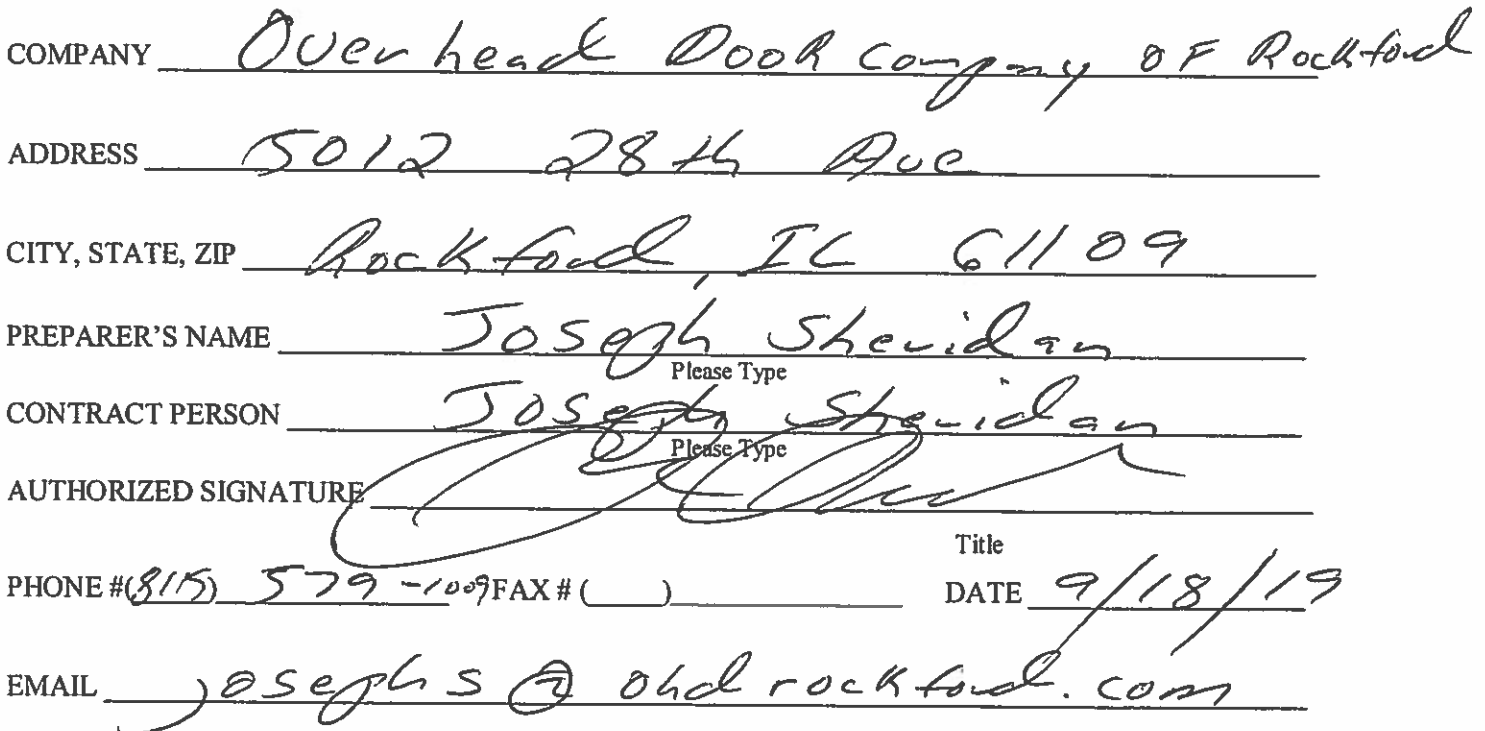 COMPANY Overhead Door Company OF Rockford
ADDRESS 5012 28th Ave
CITY, STATE, ZIP Rockford, IL 61109
PREPARER'S NAME Joseph Sheridan
Please Type
CONTRACT PERSON Joseph Sheridan
Please Type
AUTHORIZED SIGNATURE
Title
PHONE #(815) 579-1009 FAX # ( ) DATE 9/18/19
EMAIL josephs@ohdrockford.com